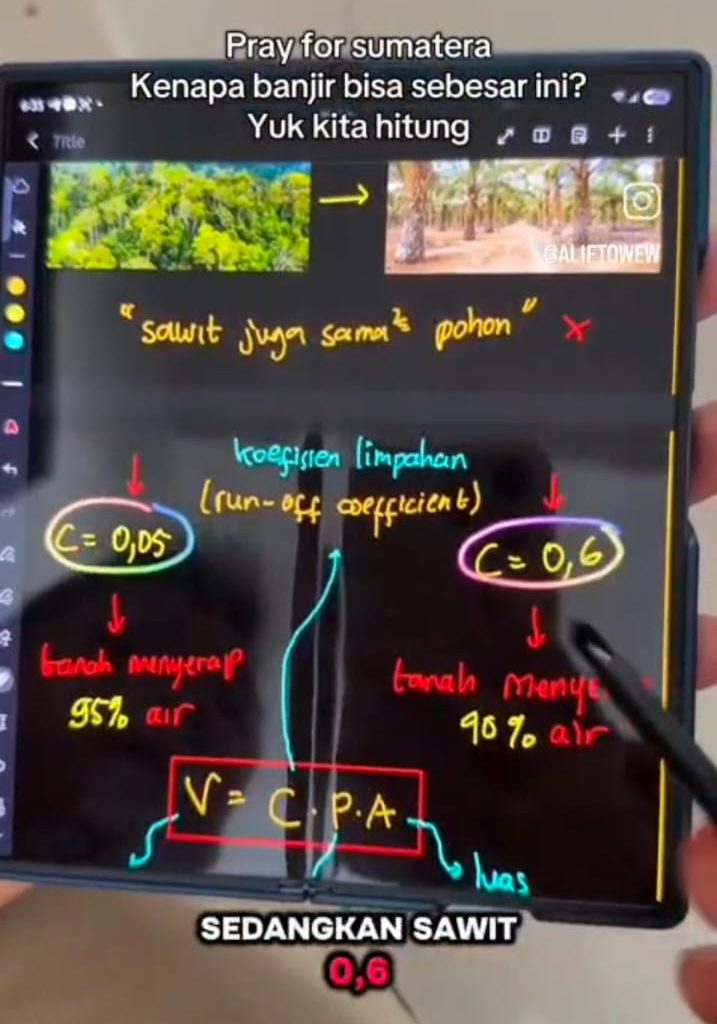 Pray for sumatera
Kenapa banjir bisa sebesar ini?
Yuk kita hitung
Title
@ALIFTOWEW
"sawit juga sama² pohon" X
koefisien limpahan
(run-off coefficient)
C = 0,05
C = 0,6
tanah menyerap
95% air
tanah Menye
40% air
V = C . P . A
luas
SEDANGKAN SAWIT
0,6